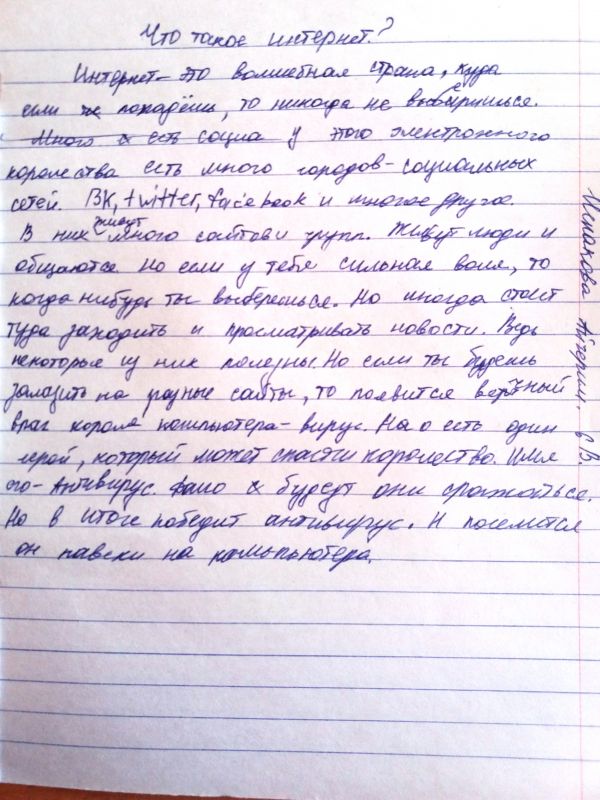 Что такое интернет?
Интернет – это волшебная страна, куда
если не попадёшь, то никогда не выберишься.
Много и есть социа у этого электронного
королевства есть много городов – социальных
сетей. ВК, twitter, facebook и многое другое.
В них живут много сайтов и групп. Живут люди и
общаются. Но если у тебя сильная воля, то
когда нибудь ты выберешься. Но иногда стоит
туда заходить и просматривать новости. Ведь
некоторые из них полезны. Но если ты будешь
залазить на разные сайты, то появится
враг короля компьютера – вирус. Но есть один
герой, который может спасти королевство. Имя
его – Антивирус. будут они сражаться.
Но в итоге победит антивирус. И поселится
он навеки на компьютера.
Ишакова Айгерим. 6 В.